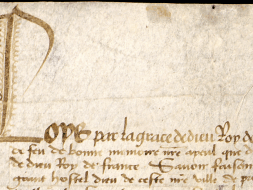 Loys par la grace de dieu Roy de
de feu de bonne memoire nre ayeul que d
de dieu Roy de france Savoir faisons
grant hostel dieu de ceste nre ville de pa